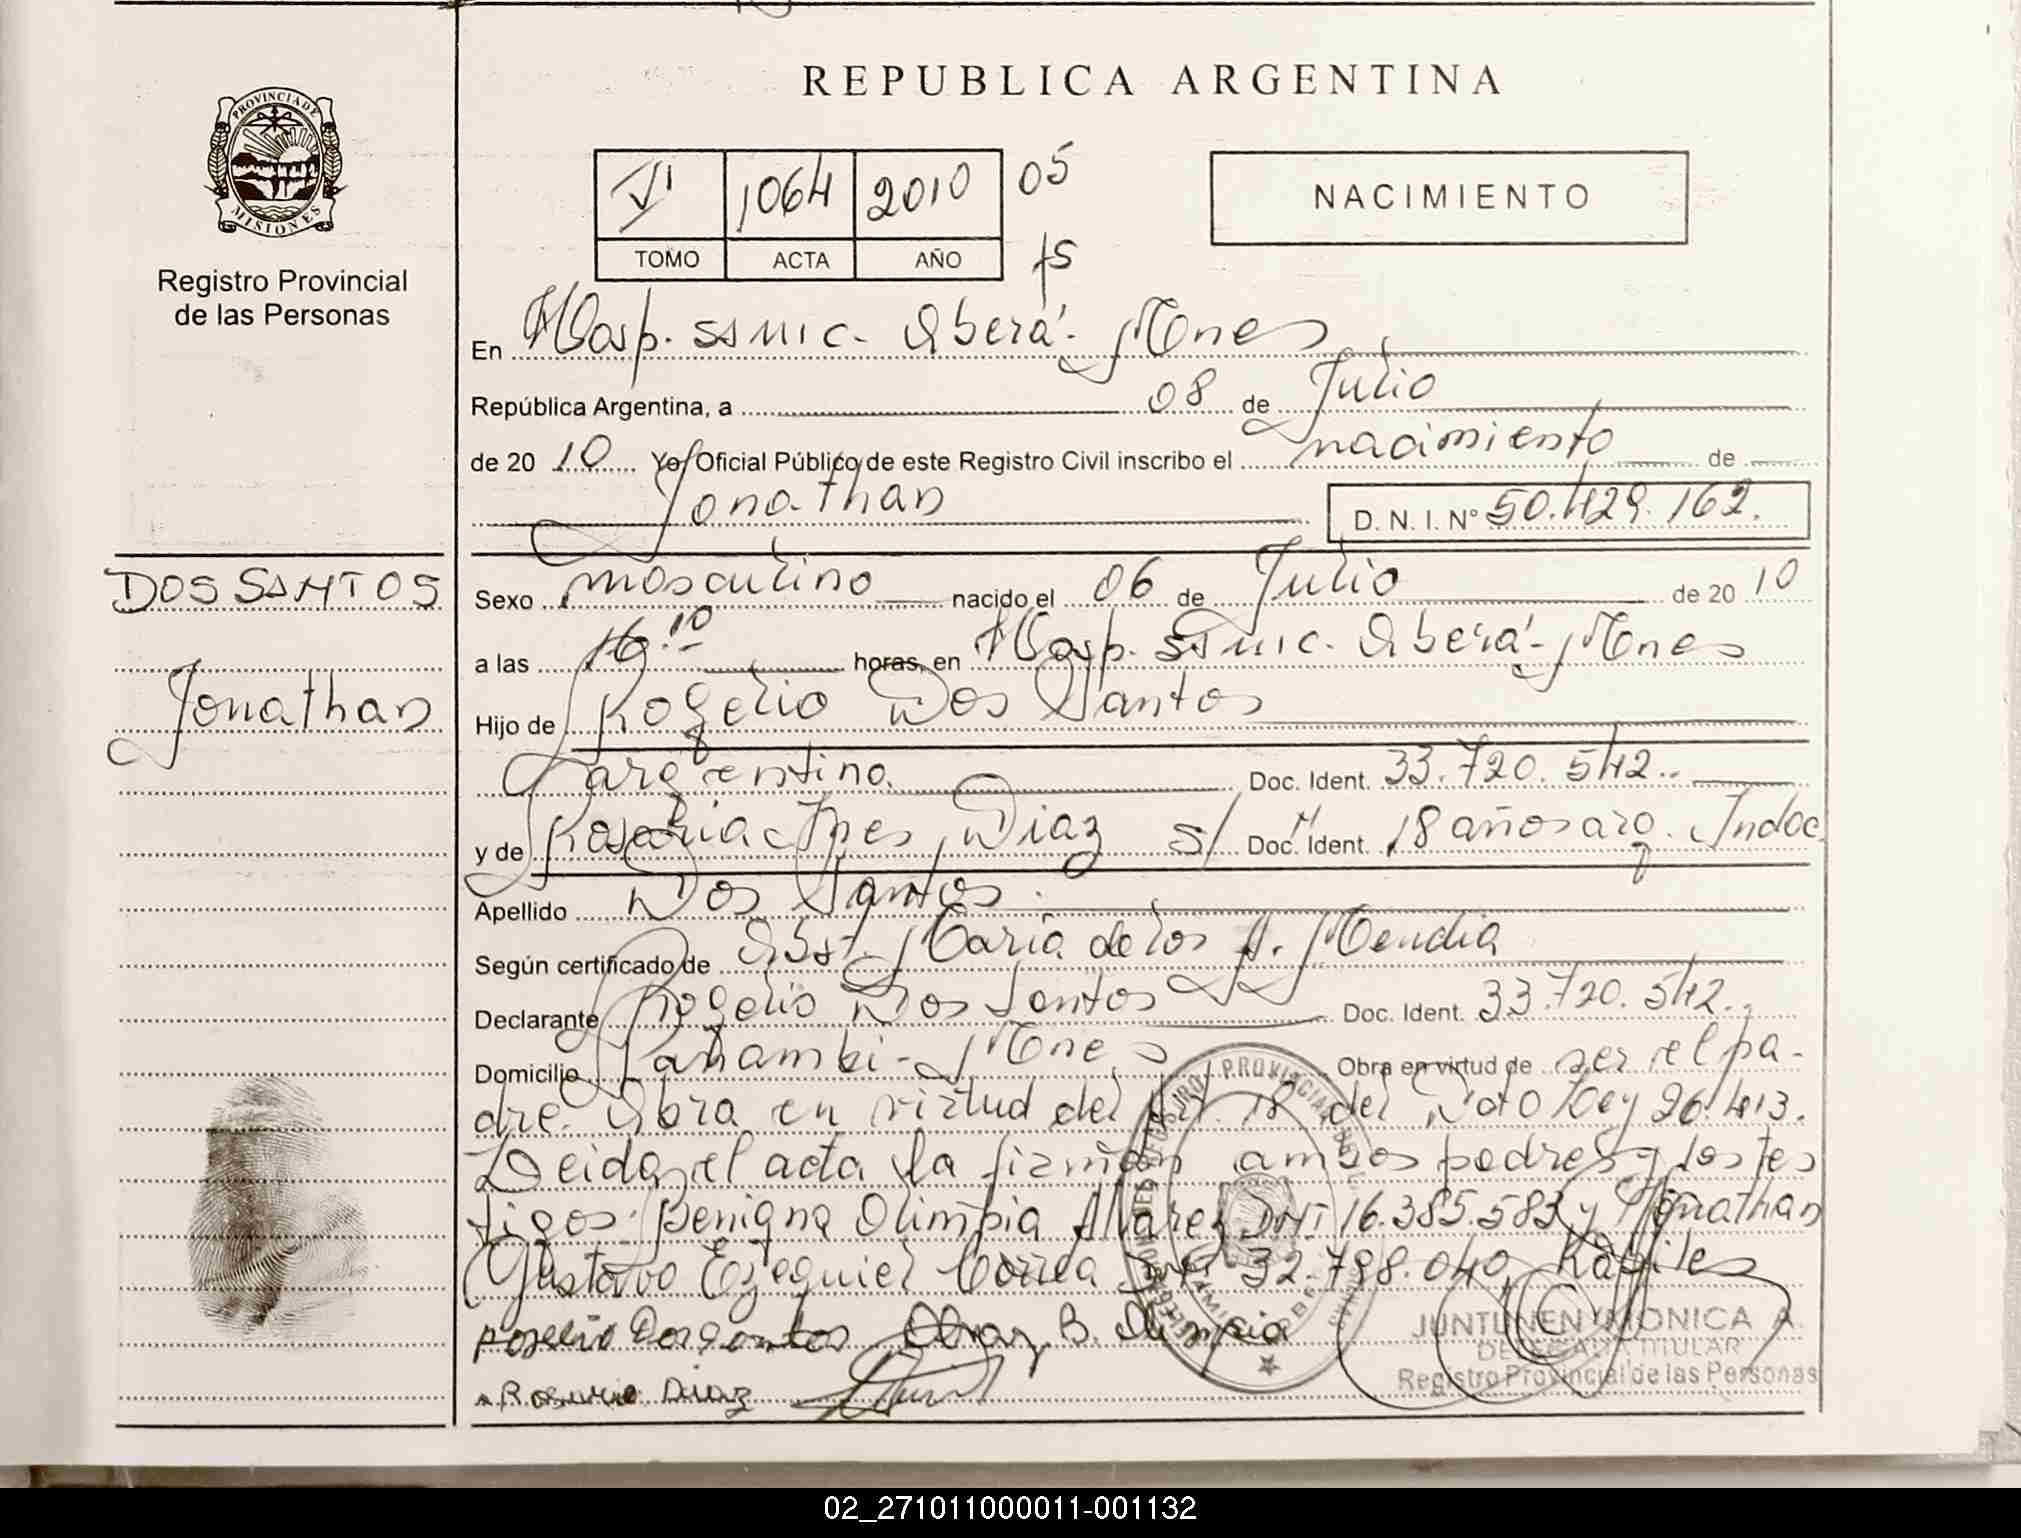 REPUBLICA ARGENTINA
PROVINCIA DE
MISIONES
Registro Provincial
de las Personas
VI 1064 2010 05
TOMO ACTA AÑO
NACIMIENTO
En Hosp. SSMIC - Oberá - Mnes
República Argentina, a 08 de Julio
de 20 10 Yo, Oficial Público de este Registro Civil inscribo el nacimiento de
Jonathan D. N. I. N° 50.429.162.
DOS SANTOS
Jonathan
Sexo masculino nacido el 06 de Julio de 20 10
a las 16.10 horas, en Hosp. SSMIC. Oberá - Mnes
Hijo de Rogelio Dos Santos
argentino. Doc. Ident. 33.720.542..
y de Diaz S/ Doc. Ident. 18 años arg. Indoc.
Apellido Dos Santos.
Según certificado de Obst. María de los A. Mendia
Declarante Rogelio Dos Santos Doc. Ident. 33.720.542.
Domicilio Panambi - Mnes Obra en virtud de ser el pa-
dre. Obra en virtud del Art. 18 del Ley 26.413.
Leida el acta la firman ambos padres y los tes
tigos: Benigna Olimpia Alvarez DNI 16.385.583 y Jonathan
Gustavo Ezequiel Correa 32.798.040,
Rogelio Dos Santos Alvarez B. Olimpia
Rosario Diaz
JUNTUNEN MONICA A.
DELEGADA TITULAR
Registro Provincial de las Personas
02_271011000011-001132